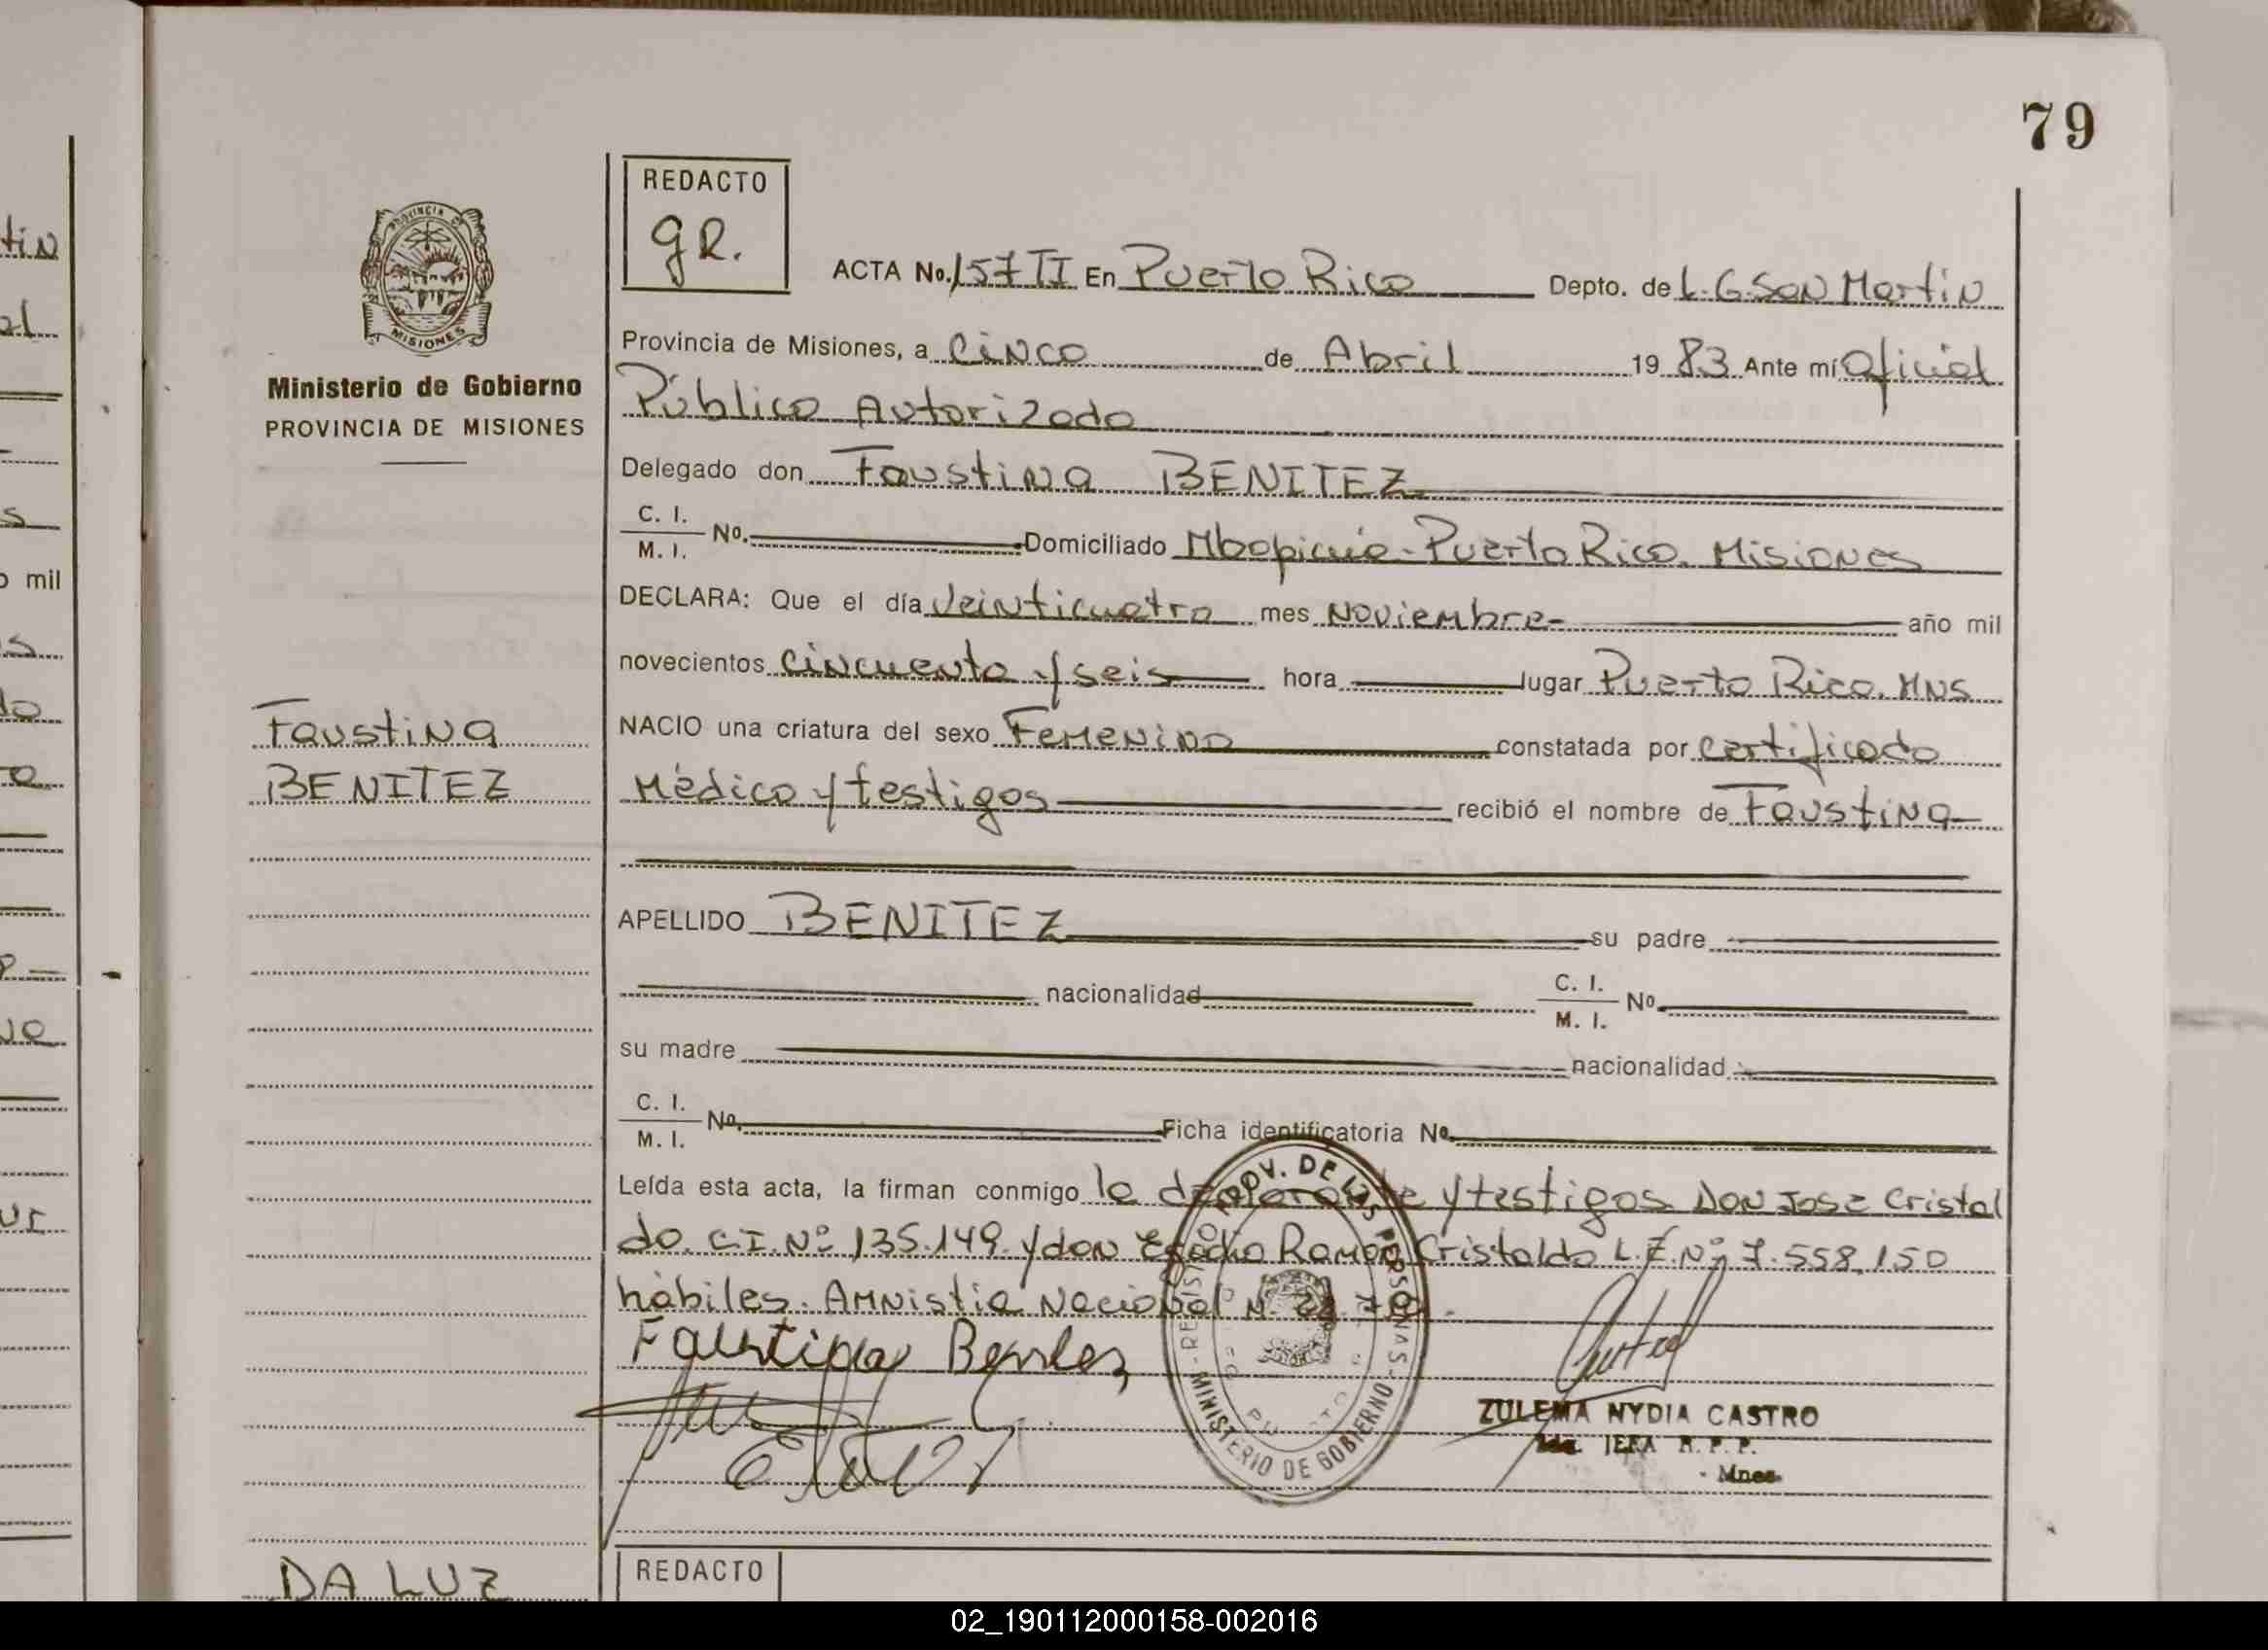 79
tin
al
s
o mil
s
do
PROVINCIA DE
MISIONES
Ministerio de Gobierno
PROVINCIA DE MISIONES
Faustina
BENITEZ
REDACTO
gR.
ACTA No. 157 TI En Puerto Rico Depto. de L. G. San Martin
Provincia de Misiones, a cinco de Abril 19 83 Ante mí Oficial
Público Autorizado
Delegado don Faustina BENITEZ
C. I. / M. I. No. Domiciliado Mbopicuá - Puerto Rico. Misiones
DECLARA: Que el día veinticuatro mes Noviembre año mil
novecientos cincuenta y seis hora lugar Puerto Rico. MNS
NACIO una criatura del sexo Femenino constatada por certificado
Médico y testigos recibió el nombre de Faustina
APELLIDO BENITEZ su padre
nacionalidad C. I. / M. I. No
su madre nacionalidad
C. I. / M. I. No. Ficha identificatoria No.
Leída esta acta, la firman conmigo la declarante y testigos Don Jose Cristal
do. C.I. Nº 135.149 y don Ramón Cristaldo L.E. Nº 7.558.150
hábiles. Amnistia Nacional N.
Faustina Benitez
PROV. DE LAS PERSONAS - MINISTERIO DE GOBIERNO - REGISTRO
ZULEMA NYDIA CASTRO
2da. JEFA R. P. P.
Mnes.
DA LUZ
REDACTO
02_190112000158-002016